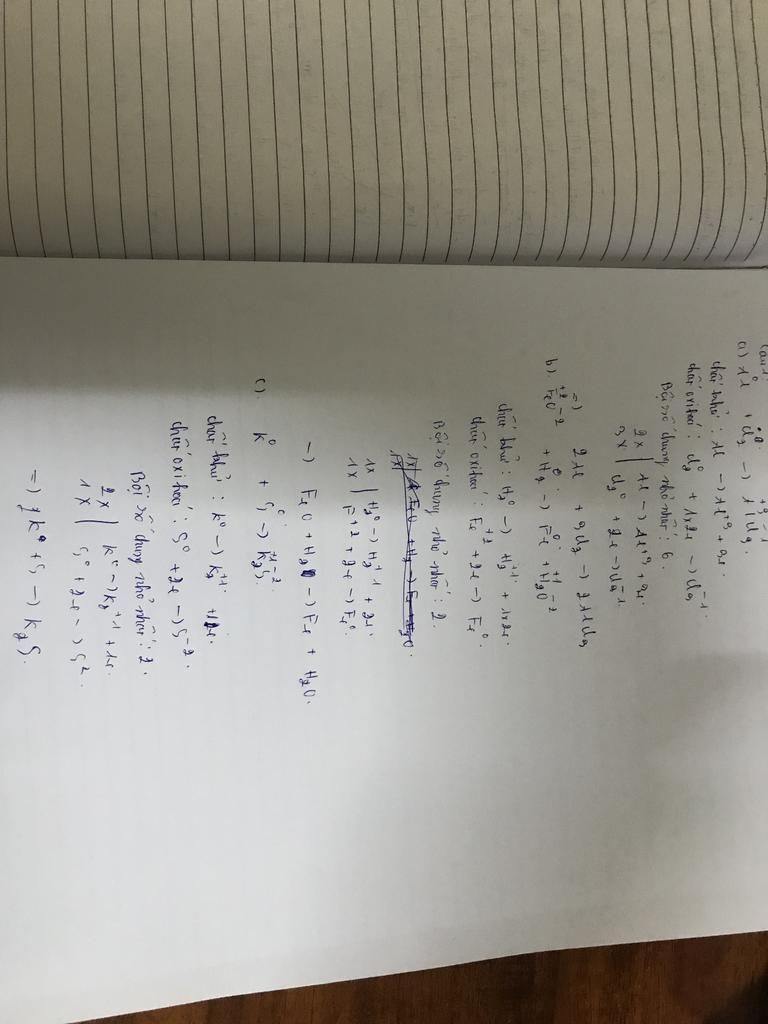 Câu 1:
a) Al⁰ + Cl₂⁰ → Al⁺³Cl₃⁻¹
chất khử: Al → Al⁺³ + 3e
chất oxi hoá: Cl₂⁰ + 1x2e → Cl₂⁻¹
Bội số chung nhỏ nhất: 6.
2x | Al → Al⁺³ + 3e
3x | Cl₂⁰ + 2e → Cl₂⁻¹.
=) 2Al + 3Cl₂ → 2AlCl₃
b). Fe⁺²O⁻² + H₂⁰ → Fe⁰ + H₂⁺¹O⁻²
chất khử: H₂⁰ → H₂⁺¹ + 1x2e.
chất oxi hoá: Fe⁺² + 2e → Fe⁰.
Bội số chung nhỏ nhất: 2.
1x | H₂⁰ → H₂⁺¹ + 2e.
1x | F⁺² + 2e → Fe⁰.
→ FeO + H₂ → Fe + H₂O.
c). K⁰ + S⁰ → K₂⁺¹S⁻².
chất khử: K⁰ → K₂⁺¹ + 1e.
chất oxi hoá: S⁰ + 2e → S⁻².
Bội số chung nhỏ nhất: 2.
2x | K⁰ → K₂⁺¹ + 1e.
1x | S⁰ + 2e → S².
=) 2K⁰ + S → K₂S.